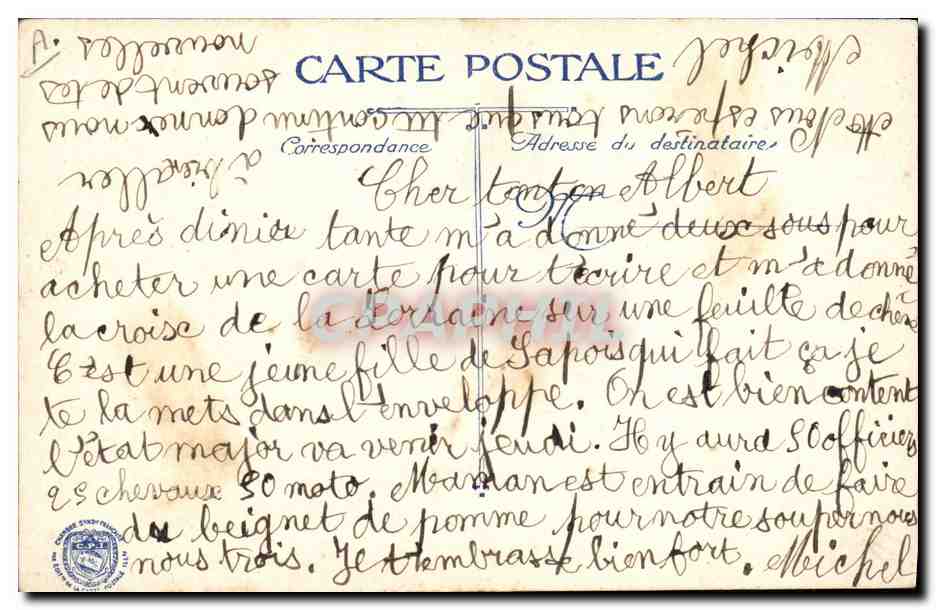 CARTE POSTALE
Correspondance
Adresse du destinataire
M
Cher tonton Albert
Après dinier tante m'a donné deux sous pour
acheter une carte pour t'écrire et m'a donné
la croix de la Lorraine sur une feuille de chêne
C'est une jeune fille de Sapois qui fait ça je
te la mets dans l'enveloppe. On est bien content
l'état major va venir jeudi. Il y aura 50 officiers
25 chevaux 50 moto. Maman est entrain de faire
du beignet de pomme pour notre souper nous
nous trois. Je t'embrasse bien fort. Michel
à
Nous esperons tous que tu continu donnez nous
souvent de tes
nouvelles
Michel
A.
CHAMBRE SYNDLE FRANÇAISE
C.P.I
DES EDITRS DE LA CARTE POSTALE ILLÉE